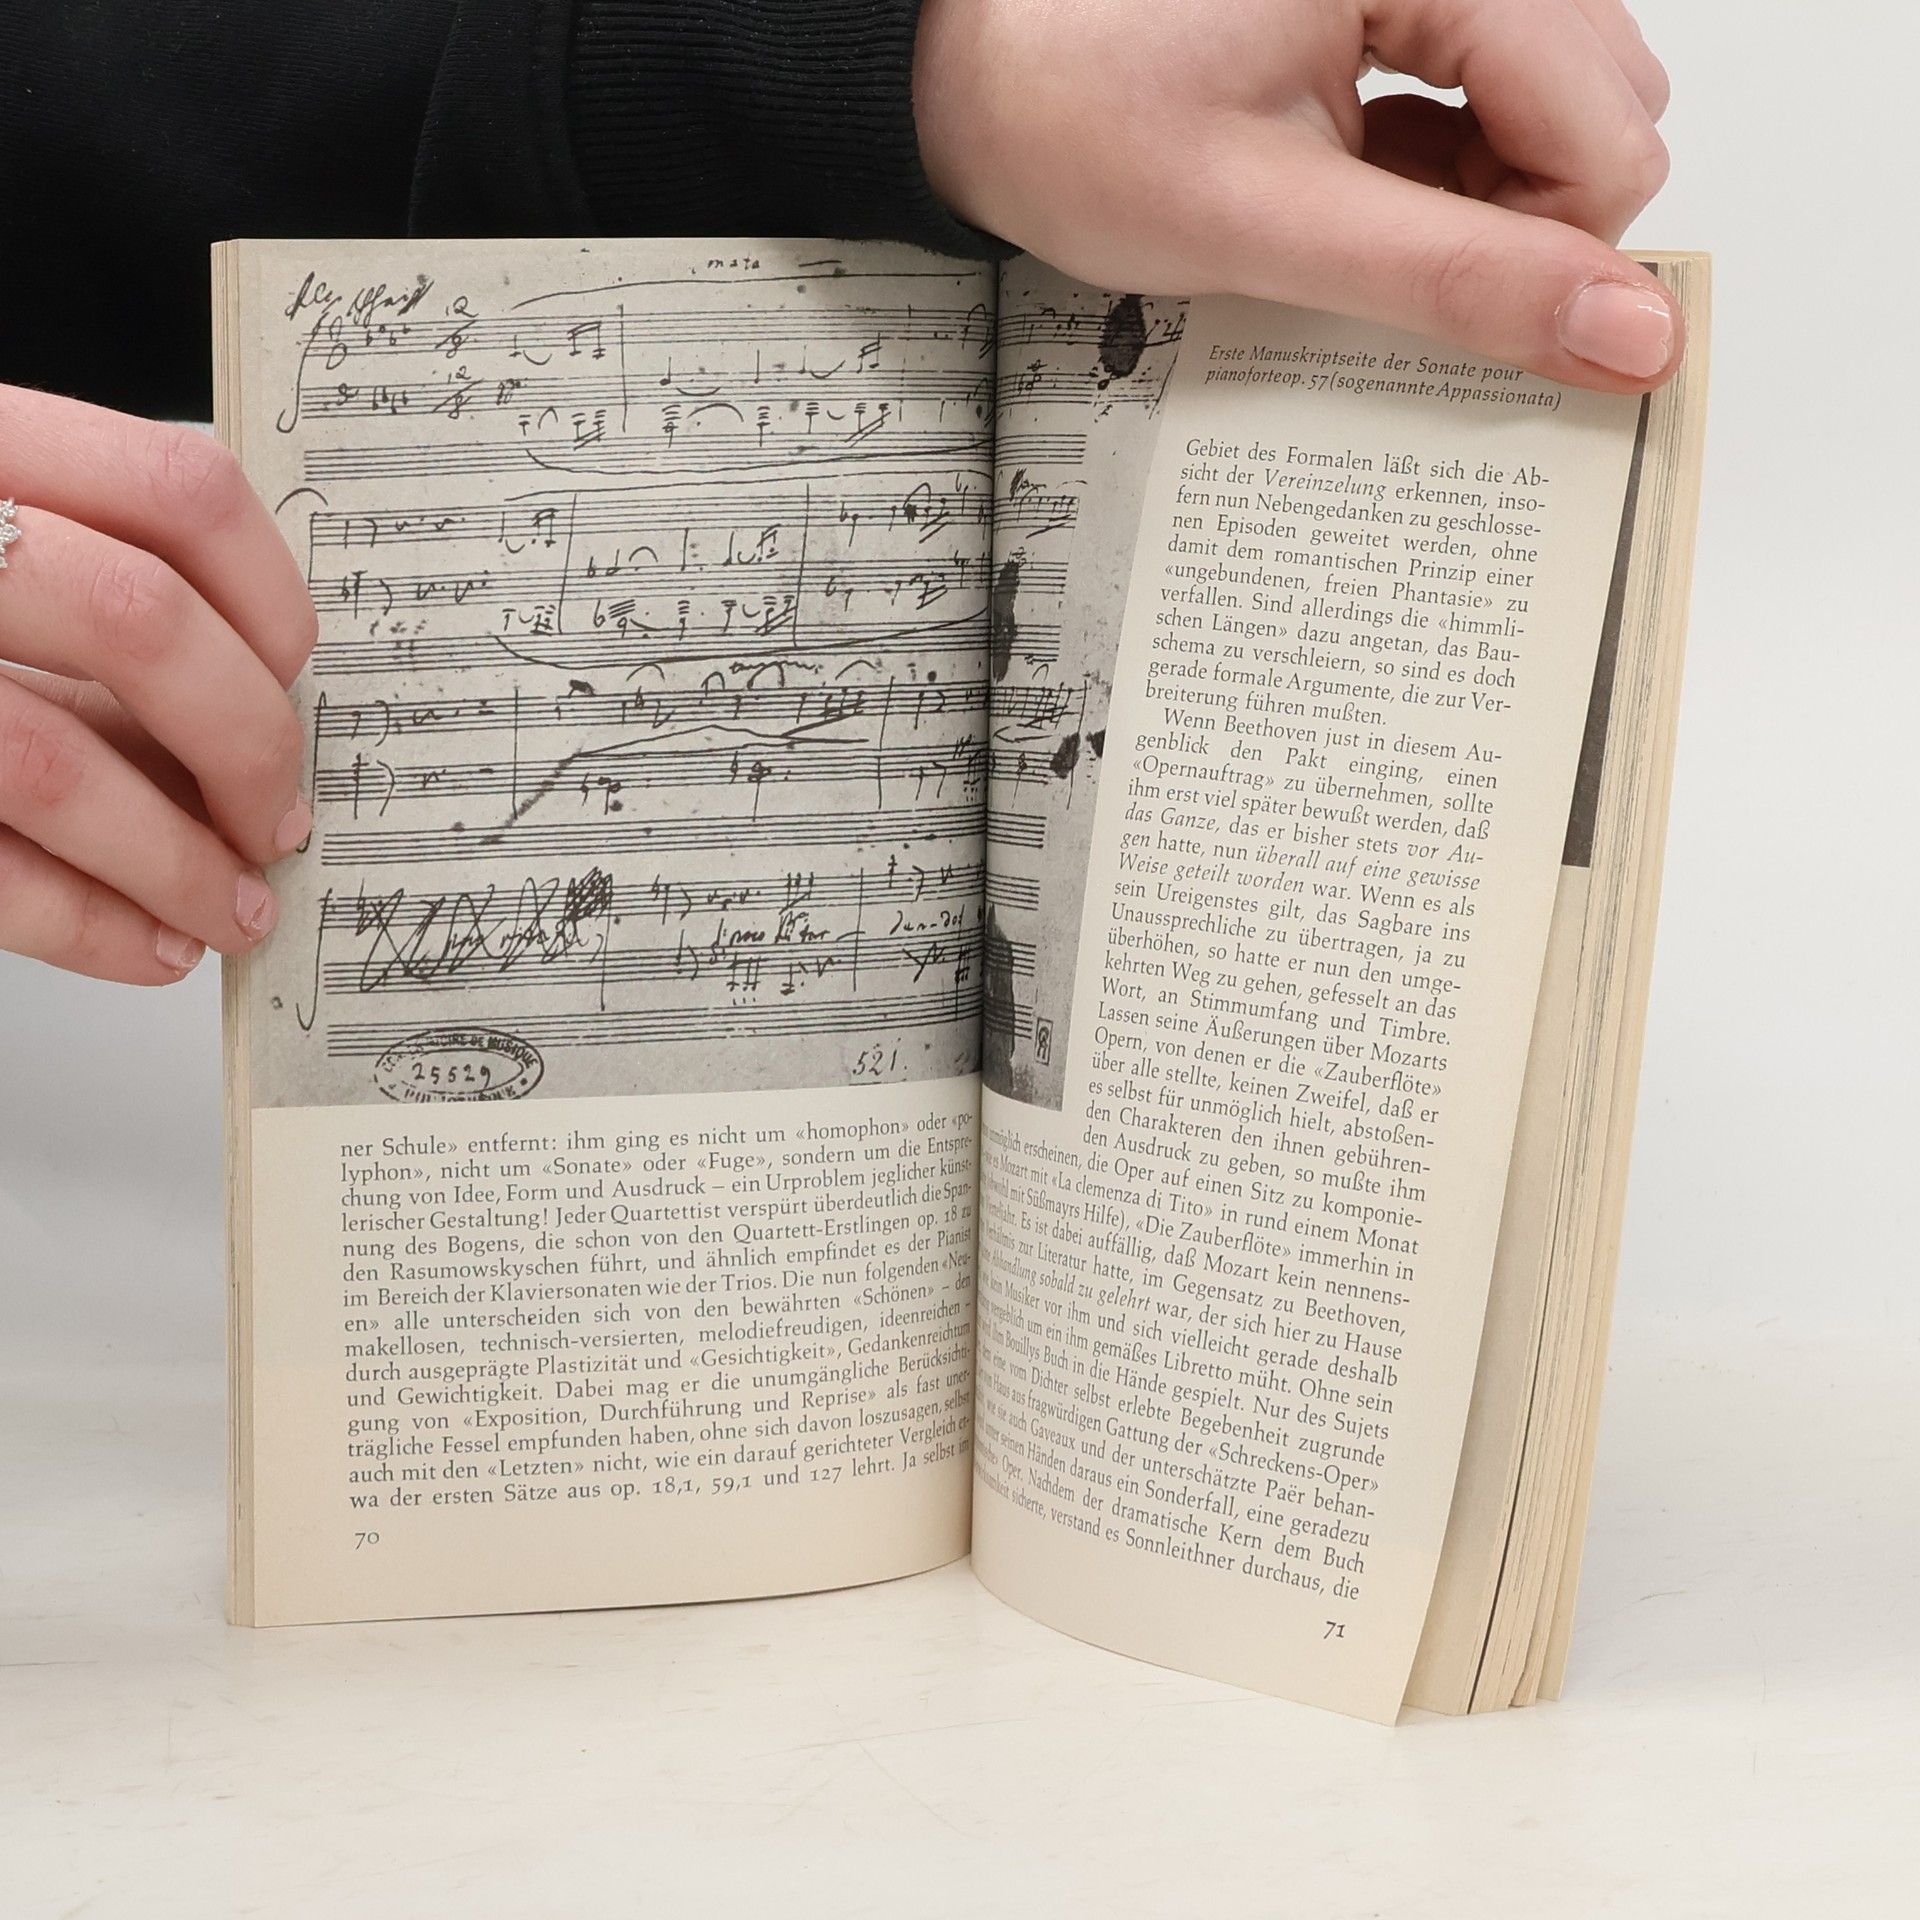 mata
25529
521.
ner Schule» entfernt: ihm ging es nicht um «homophon» oder «po-
lyphon», nicht um «Sonate» oder «Fuge», sondern um die Entspre-
chung von Idee, Form und Ausdruck – ein Urproblem jeglicher künst-
lerischer Gestaltung! Jeder Quartettist verspürt überdeutlich die Span-
nung des Bogens, die schon von den Quartett-Erstlingen op. 18 zu
den Rasumowskyschen führt, und ähnlich empfindet es der Pianist
im Bereich der Klaviersonaten wie der Trios. Die nun folgenden «Neu-
en» alle unterscheiden sich von den bewährten «Schönen» – den
makellosen, technisch-versierten, melodiefreudigen, ideenreichen –
durch ausgeprägte Plastizität und «Gesichtigkeit», Gedankenreichtum
und Gewichtigkeit. Dabei mag er die unumgängliche Berücksichti-
gung von «Exposition, Durchführung und Reprise» als fast uner-
trägliche Fessel empfunden haben, ohne sich davon loszusagen, selbst
auch mit den «Letzten» nicht, wie ein darauf gerichteter Vergleich et-
wa der ersten Sätze aus op. 18,1, 59,1 und 127 lehrt. Ja selbst im
70
Erste Manuskriptseite der Sonate pour
pianoforte op. 57 (sogenannte Appassionata)
Gebiet des Formalen läßt sich die Ab-
sicht der Vereinzelung erkennen, inso-
fern nun Nebengedanken zu geschlosse-
nen Episoden geweitet werden, ohne
damit dem romantischen Prinzip einer
«ungebundenen, freien Phantasie» zu
verfallen. Sind allerdings die «himmli-
schen Längen» dazu angetan, das Bau-
schema zu verschleiern, so sind es doch
gerade formale Argumente, die zur Ver-
breiterung führen mußten.
Wenn Beethoven just in diesem Au-
genblick den Pakt einging, einen
«Opernauftrag» zu übernehmen, sollte
ihm erst viel später bewußt werden, daß
das Ganze, das er bisher stets vor Au-
gen hatte, nun überall auf eine gewisse
Weise geteilt worden war. Wenn es als
sein Ureigenstes gilt, das Sagbare ins
Unaussprechliche zu übertragen, ja zu
überhöhen, so hatte er nun den umge-
kehrten Weg zu gehen, gefesselt an das
Wort, an Stimmumfang und Timbre.
Lassen seine Äußerungen über Mozarts
Opern, von denen er die «Zauberflöte»
über alle stellte, keinen Zweifel, daß er
es selbst für unmöglich hielt, abstoßen-
den Charakteren den ihnen gebühren-
den Ausdruck zu geben, so mußte ihm
unmöglich erscheinen, die Oper auf einen Sitz zu komponie-
es Mozart mit «La clemenza di Tito» in rund einem Monat
mit Süßmayrs Hilfe), «Die Zauberflöte» immerhin in
Es ist dabei auffällig, daß Mozart kein nennens-
Verhältnis zur Literatur hatte, im Gegensatz zu Beethoven,
Abhandlung sobald zu gelehrt war, der sich hier zu Hause
wie kein Musiker vor ihm und sich vielleicht gerade deshalb
vergeblich um ein ihm gemäßes Libretto müht. Ohne sein
Bouillys Buch in die Hände gespielt. Nur des Sujets
eine vom Dichter selbst erlebte Begebenheit zugrunde
Haus aus fragwürdigen Gattung der «Schreckens-Oper»
wie sie auch Gaveaux und der unterschätzte Paër behan-
unter seinen Händen daraus ein Sonderfall, eine geradezu
Oper. Nachdem der dramatische Kern dem Buch
sicherte, verstand es Sonnleithner durchaus, die
71